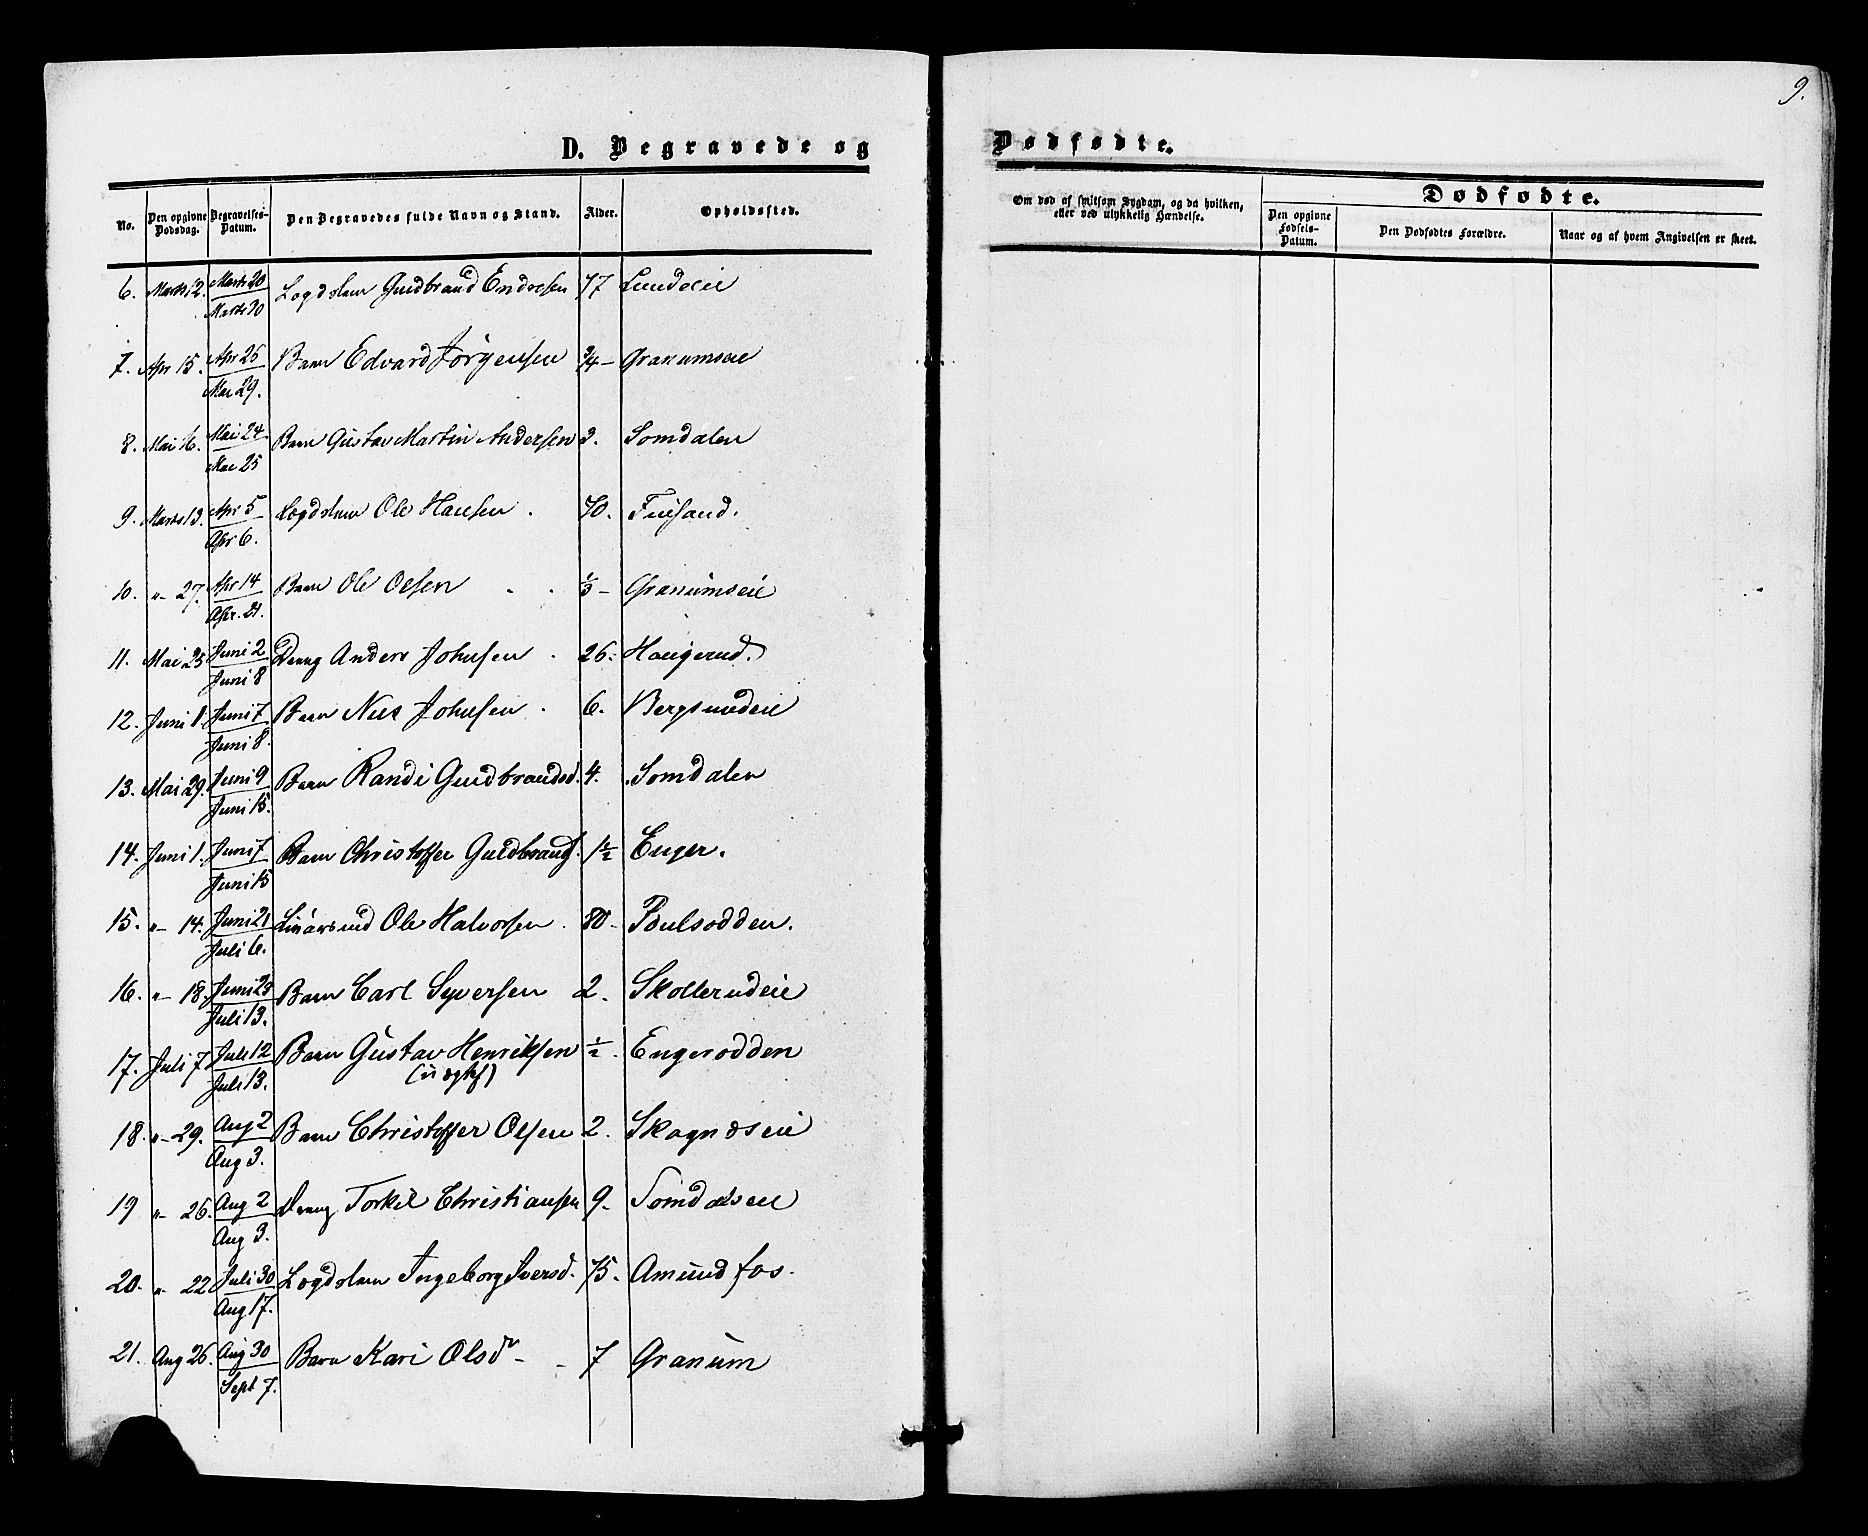 9.
D. Begravede og Dødfødte.
No. Den opgivne Dødsdag. Begravelses-Datum. Den Begravedes fulde Navn og Stand. Alder. Opholdssted.
Om død af smitsom Sygdom, og da hvilken, eller ved ulykkelig Hændelse.
Dødfødte.
Den opgivne Fødsels-Datum. Den Dødfødtes Forældre. Naar og af hvem Angivelsen er skeet.
6. Marts 12. Marts 20 Marts 30 Lægdslem Guldbrand Endresen 77 Lundeie
7. Apr 15. Apr 25 Mai 29. Barn Edvard Jørgensen 3/4 - Granumseie
8. Mai 16. Mai 24. Mai 25 Barn Gustav Martin Andersen 3. Somdalen
9. Marts 13. Apr 5 Apr 6. Lægdslem Ole Hansen . 70. Finsand.
10. "- 27. Apr 14 Apr. 21. Barn Ole Olsen . . 1/3 - Granumseie
11. Mai 25 Juni 2 Juni 8 Dreng Anders Johnsen . 26. Haugerud.
12. Juni 1. Juni 7 Juni 8. Barn Nils Johnsen . 6. Bergsundeie
13. Mai 29. Juni 9 Juni 15. Barn Randi Guldbrandsd. 4. Somdalen
14. Juni 1. Juni 7 Juni 15 Barn Christoffer Guldbrands. 1 1/2 Enger.
15. "- 14. Juni 21 Juli 6. Livørsmd Ole Halvorsen . 80 - Poulsodden.
16. "- 18. Juni 23 Juli 13. Barn Carl Syversen 2. Skollerudeie
17. Juli 7. Juli 12 Juli 13. Barn Gustav Henriksen 1/2. Engerodden
(uægtef)
18. "- 29. Aug 2 Aug 3. Barn Christoffer Olsen 2. Skagnæseie
19 "- 26. Aug 2 Aug 3. Dreng Torkil Christiansen 9. Somdalseie
20. "- 22 Juli 30 Aug 17. Lægdslem Ingeborg Iversd. 75. Amundfos.
21. Aug 26. Aug 30 Sept 7. Barn Kari Olsdr - - 7 Granum